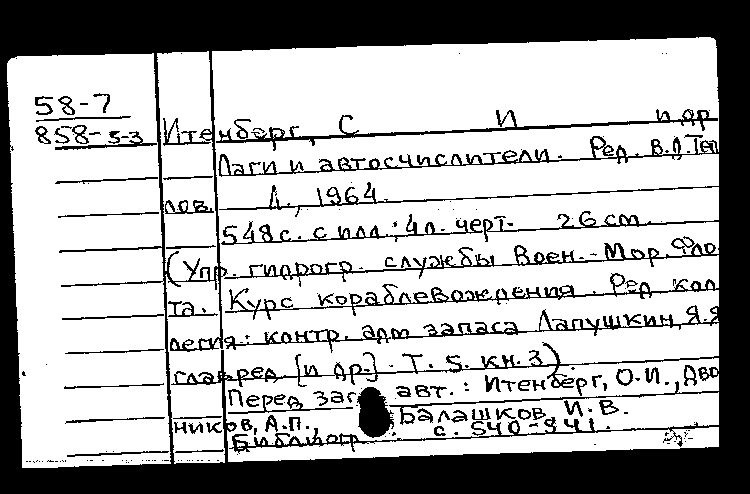 58-7
858-5-3 Итенберг, С И и др
Лаги и автосчислители. Ред. В.Д. Теп
лов. Л., 1964.
548 с. с илл.; 4 л. черт. 26 cm.
(Упр. гидрогр. службы Воен.-Мор. Фло
та. Курс кораблевождения. Ред. кол
легия: контр. адм запаса Лапушкин, Я.Я
глав. ред. [и др.]. Т. 5. кн. 3)
Перед заг авт.: Итенберг, О.И., Дво
ников, А.П., Балашков, И.В.
Библиогр с. 540-541.